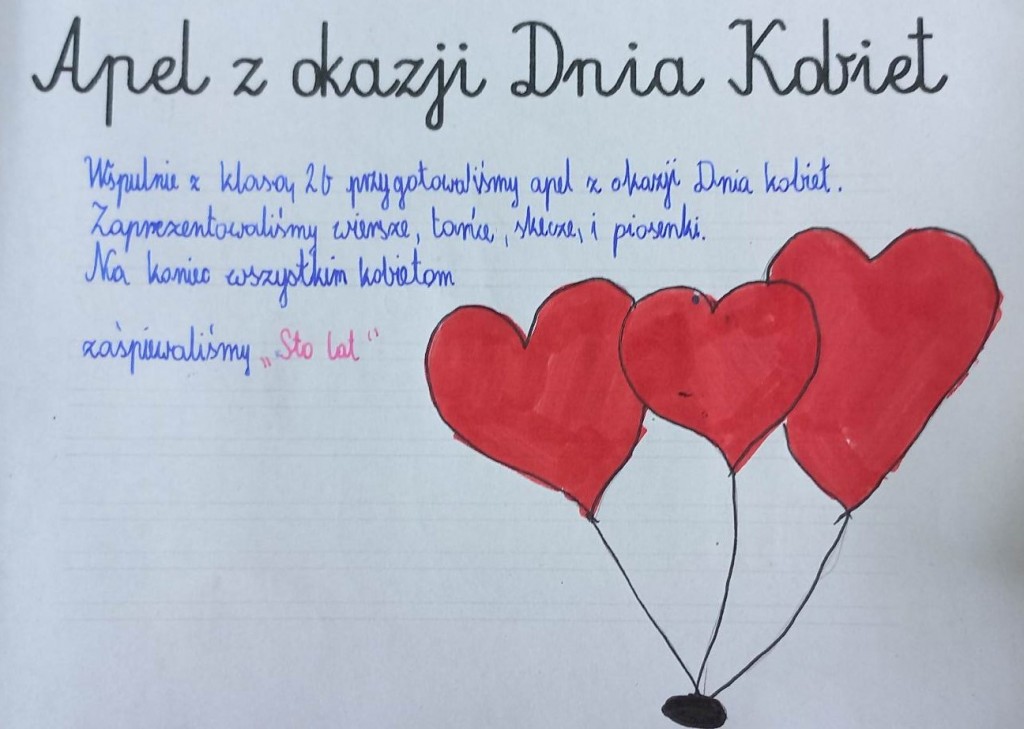 Apel z okazji Dnia Kobiet
Wspulnie z klasą 2b przygotowaliśmy apel z okazji Dnia kobiet.
Zaprezentowaliśmy wiersze, tańce, skecze, i piosenki.
Na koniec wszystkim kobietom
zaśpiewaliśmy „Sto lat"